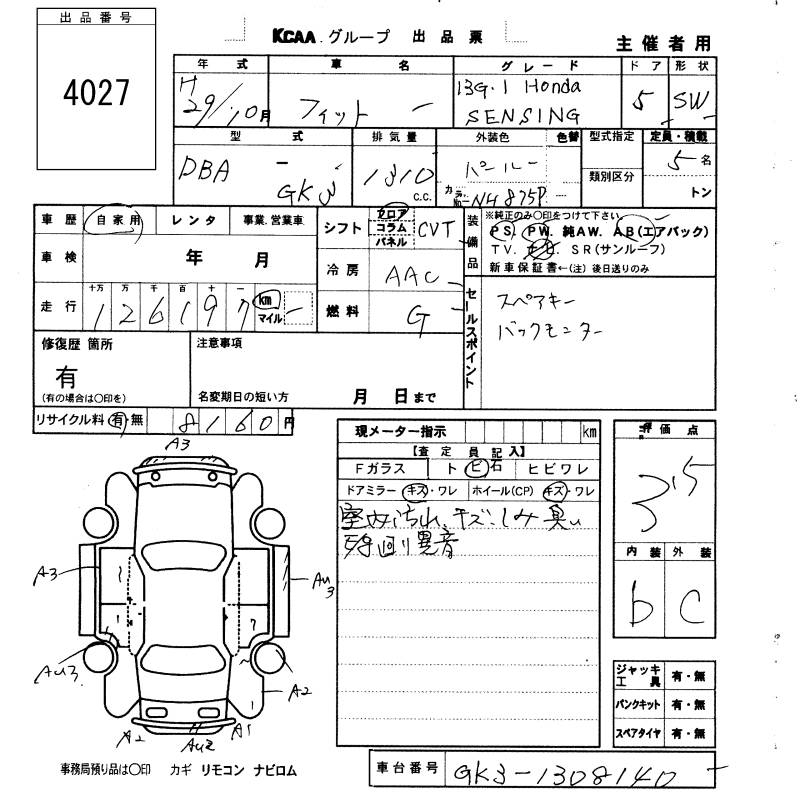 出品番号
4027
KCAA グループ 出品票
主催者用
年式 車名 グレード ドア 形状
H 29/10月 フィット 13G・1 Honda SENSING 5 SW
型式 排気量 外装色 色替 型式指定 定員・積載
DBA - GK3 1310 c.c. パール カラーNo. NH875P 類別区分 5名
トン
車歴 自家用 レンタ 事業.営業車
車検 年 月
走行 十万 万 千 百 十 一
126197 km マイル
シフト フロア コラム パネル CVT
冷房 AAC
燃料 G
装備品 ※純正のみ〇印をつけて下さい
PS. PW. 純AW. AB(エアバック)
TV. SR(サンルーフ)
新車保証書←(注)後日送りのみ
セールスポイント
スペアキー
バックモニター
修復歴 箇所
有
(有の場合は〇印を)
注意事項
名変期日の短い方 月 日まで
リサイクル料 有・無 8160円
現メーター指示 km
【査定員記入】
Fガラス ト ビ 石 ヒビワレ
ドアミラー キズ・ワレ ホイール(CP) キズ・ワレ
室内汚れ、キズ、しみ 臭い
異音
評価点
3.5
内装 外装
b C
ジャッキ工具 有・無
パンクキット 有・無
スペアタイヤ 有・無
A3
A3
AU3
AU3
A2
A2
AU2
A1
事務局預り品は〇印 カギ リモコン ナビロム
車台番号 GK3-1308140